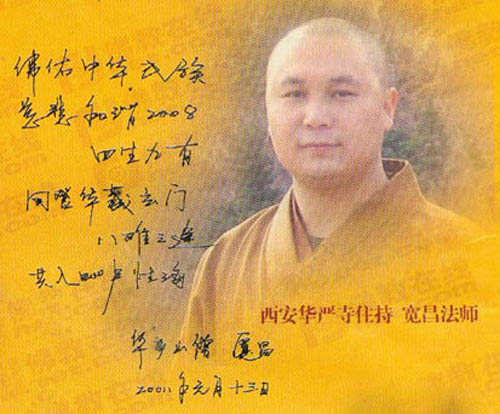 佛佑中华民族
慈悲和谐2008
四生九有
同登华藏玄门
八难三途
共入毗卢性海
西安华严寺住持 宽昌法师
华严山僧 宽昌
年元月十三日